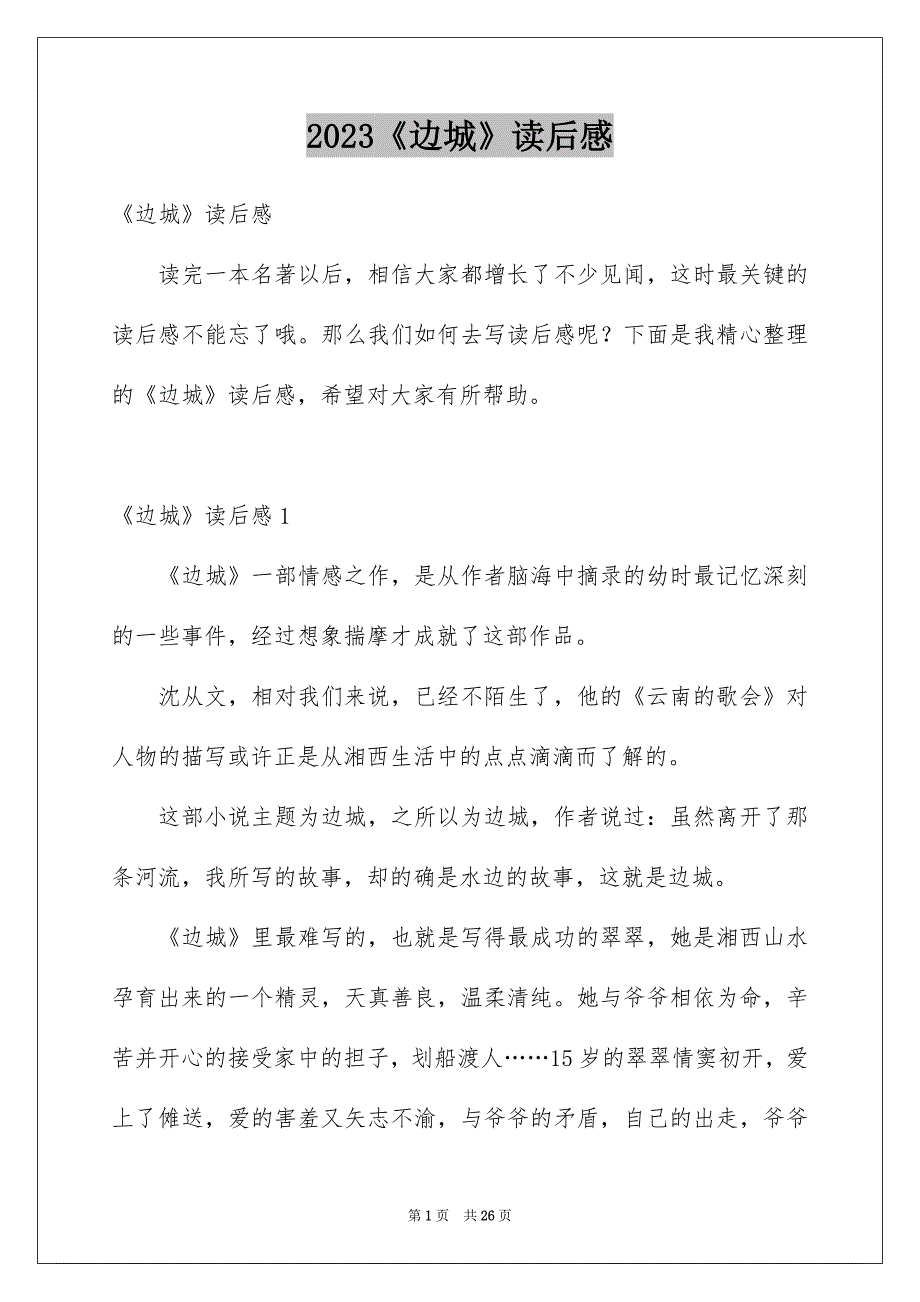 2023《边城》读后感
《边城》读后感
读完一本名著以后，相信大家都增长了不少见闻，这时最关键的
读后感不能忘了哦。那么我们如何去写读后感呢？下面是我精心整理
的《边城》读后感，希望对大家有所帮助。
《边城》读后感 1
《边城》一部情感之作，是从作者脑海中摘录的幼时最记忆深刻
的一些事件，经过想象揣摩才成就了这部作品。
沈从文，相对我们来说，已经不陌生了，他的《云南的歌会》对
人物的描写或许正是从湘西生活中的点点滴滴而了解的。
这部小说主题为边城，之所以为边城，作者说过：虽然离开了那
条河流，我所写的故事，却的确是水边的故事，这就是边城。
《边城》里最难写的，也就是写得最成功的翠翠，她是湘西山水
孕育出来的一个精灵，天真善良，温柔清纯。她与爷爷相依为命，辛
苦并开心的接受家中的担子，划船渡人……15 岁的翠翠情窦初开，爱
上了傩送，爱的害羞又矢志不渝，与爷爷的矛盾，自己的出走，爷爷
第 1 页 共 26 页